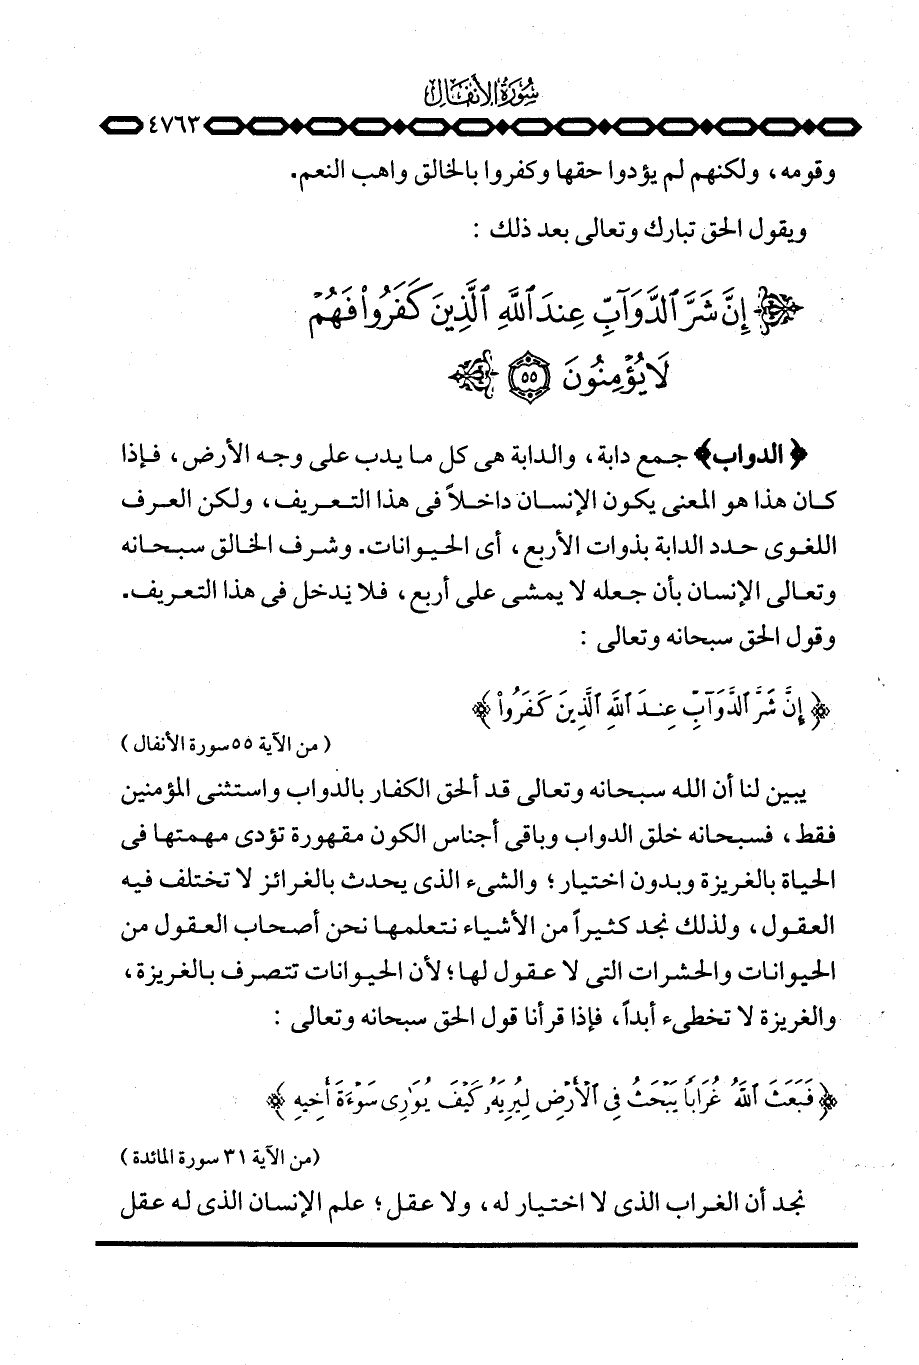 سُورَةُ الأَنفَالِ
٤٧٦٣
وقومه، ولكنهم لم يؤدوا حقها وكفروا بالخالق واهب النعم.
ويقول الحق تبارك وتعالى بعد ذلك :
﴿ إِنَّ شَرَّ ٱلدَّوَآبِّ عِندَ ٱللَّهِ ٱلَّذِينَ كَفَرُوا۟ فَهُمْ
لَا يُؤْمِنُونَ ٥٥ ﴾
﴿الدواب﴾ جمع دابة، والدابة هى كل ما يدب على وجه الأرض، فإذا
كان هذا هو المعنى يكون الإنسان داخلاً فى هذا التعريف، ولكن العرف
اللغوى حدد الدابة بذوات الأربع، أى الحيوانات. وشرف الخالق سبحانه
وتعالى الإنسان بأن جعله لا يمشى على أربع، فلا يدخل فى هذا التعريف.
وقول الحق سبحانه وتعالى :
﴿ إِنَّ شَرَّ ٱلدَّوَآبِّ عِندَ ٱللَّهِ ٱلَّذِينَ كَفَرُوا۟ ﴾
( من الآية ٥٥ سورة الأنفال )
يبين لنا أن الله سبحانه وتعالى قد ألحق الكفار بالدواب واستثنى المؤمنين
فقط، فسبحانه خلق الدواب وباقى أجناس الكون مقهورة تؤدى مهمتها فى
الحياة بالغريزة وبدون اختيار؛ والشىء الذى يحدث بالغرائز لا تختلف فيه
العقول، ولذلك نجد كثيراً من الأشياء نتعلمها نحن أصحاب العقول من
الحيوانات والحشرات التى لا عقول لها؛ لأن الحيوانات تتصرف بالغريزة،
والغريزة لا تخطىء أبداً، فإذا قرأنا قول الحق سبحانه وتعالى :
﴿ فَبَعَثَ ٱللَّهُ غُرَابًا يَبْحَثُ فِى ٱلْأَرْضِ لِيُرِيَهُۥ كَيْفَ يُوَٰرِى سَوْءَةَ أَخِيهِ ﴾
(من الآية ٣١ سورة المائدة )
نجد أن الغراب الذى لا اختيار له، ولا عقل؛ علم الإنسان الذى له عقل